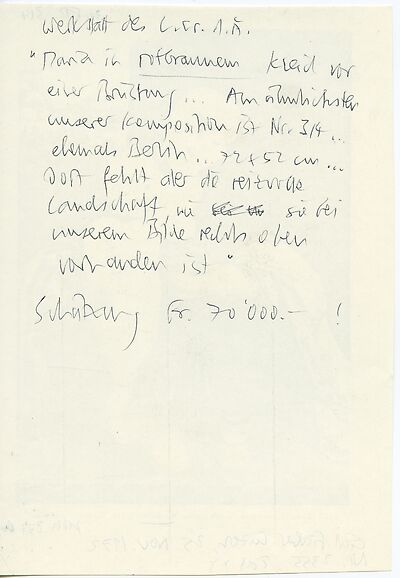 Werkstatt des L. Cr. d. Ä.
"Maria in rotbraunem Kleid vor
einer Brüstung... Am ähnlichsten
unserer Komposition ist Nr. 314...
ehemals Berlin... 72 x 52 cm...
Dort fehlt aber die reizvolle
Landschaft, wie sie bei
unserem Bilde rechts oben
vorhanden ist"
Schätzung Fr. 70'000.– !